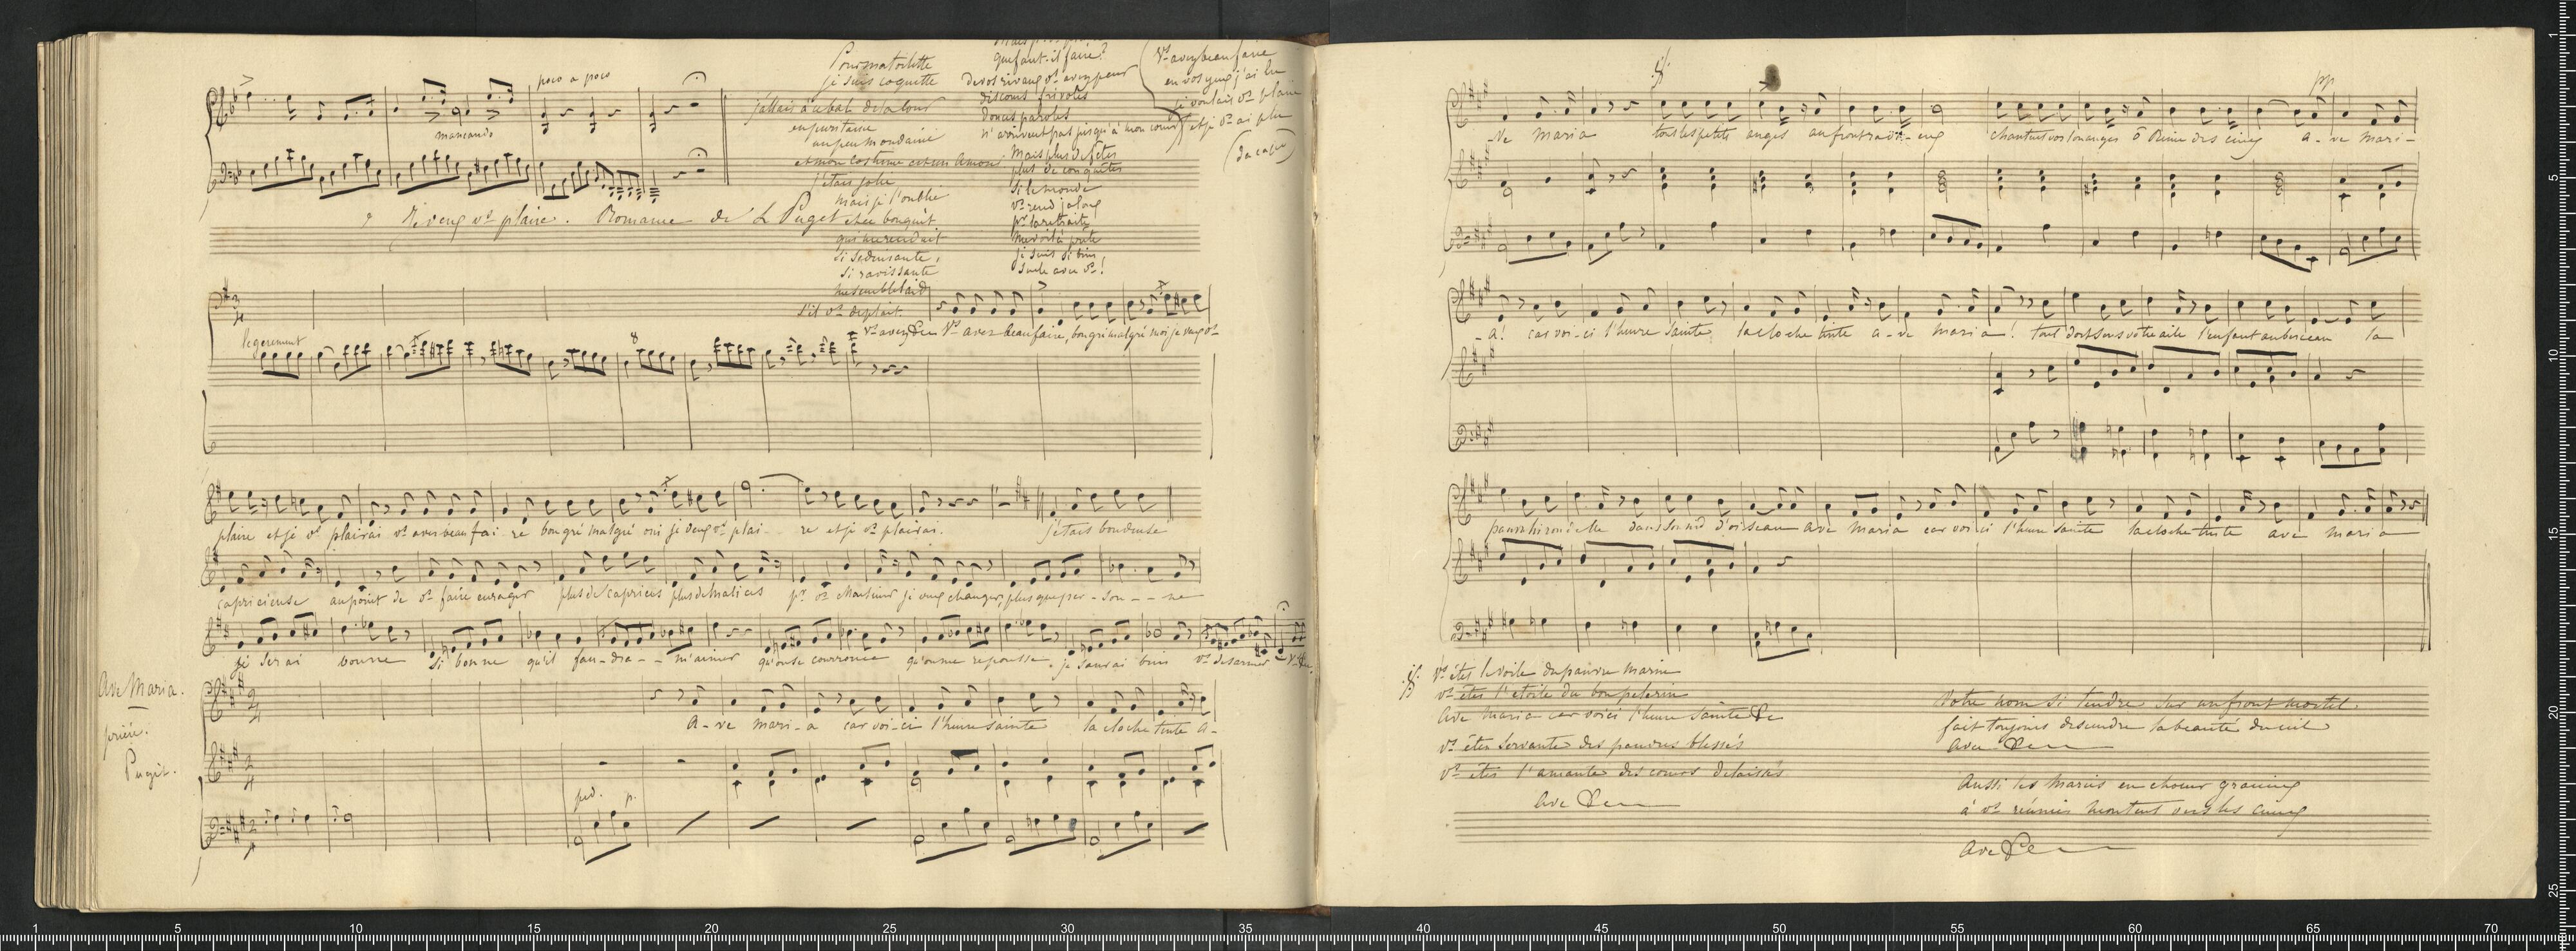 poco a poco
mancando
Je veux vs plaire. Romance de L Puget
Pour ma toilette
je suis coquette
j'allais au bal de la cour
en puritaine
un peu mondaine
et mon costume etait un amour
j'étais jolie
mais je l'oublie
ce bouquet
qui me rendait
si séduisante,
si ravissante
me semble laid
s'il vs deplait.
que faut-il faire?
de vos rivaux vs avez peur
discours frivoles
douces paroles
n'arrivent pas jusqu'à mon coeur
Mais plus de fêtes
plus de conquêtes
Si le monde
vs rend jaloux
pr la retraite
me voilà prête
je suis si bien
seule avec vs!
Vs avez beau faire
en vos yeux j'ai lu
je voulais vs plaire
et je vs ai plu
(da capo)
legerement
8
Vs avez &c Vs avez beau faire, bon gré malgré moi je veux vs
plaire et je vs plairai vs avez beau fai-re bon gré malgré oui je veux vs plai-re et je vs plairai. j'étais boudeuse
capricieuse au point de vs faire enrager plus de caprices plus de malices pr vs Monsieur je veux changer, plus que per-son--ne
je serai bonne si bonne qu'il fau-dra-- m'aimer qu'on se courrouce qu'on me repousse, je saurai bien vs desarmer
Ave Maria.
prière.
Puget.
A-ve mari-a car voi-ci l'heure sainte la cloche tinte a-
ped. p.
pp
-Ve Maria tous les petits anges au front radi-eux chantent vos louanges ô Reine des cieux a-ve mari-
-a! car voi-ci l'heure sainte la cloche tinte a-ve maria! tout dort sous votre aile l'enfant au berceau la
pauvre hirondelle dans son nid d'oiseau ave maria car voi-ci l'heure sainte la cloche tinte ave maria
vs êtes le voile du pauvre marin
vs êtes l'etoile du bon pelerin
Ave Maria car voici l'heure sainte &c
vs êtes servante des pauvres blessés
vs êtes l'amante des coeurs délaissés
Ave &c
Votre nom si tendre sur un front mortel
fait toujours descendre la beauté du ciel
Ave &c
Aussi les Maries en choeur gracieux
à vs réunies montent vers les cieux
Ave &c
1 5 10 15 20 25 30 35 40 45 50 55 60 65 70
1
5
10
15
20
25